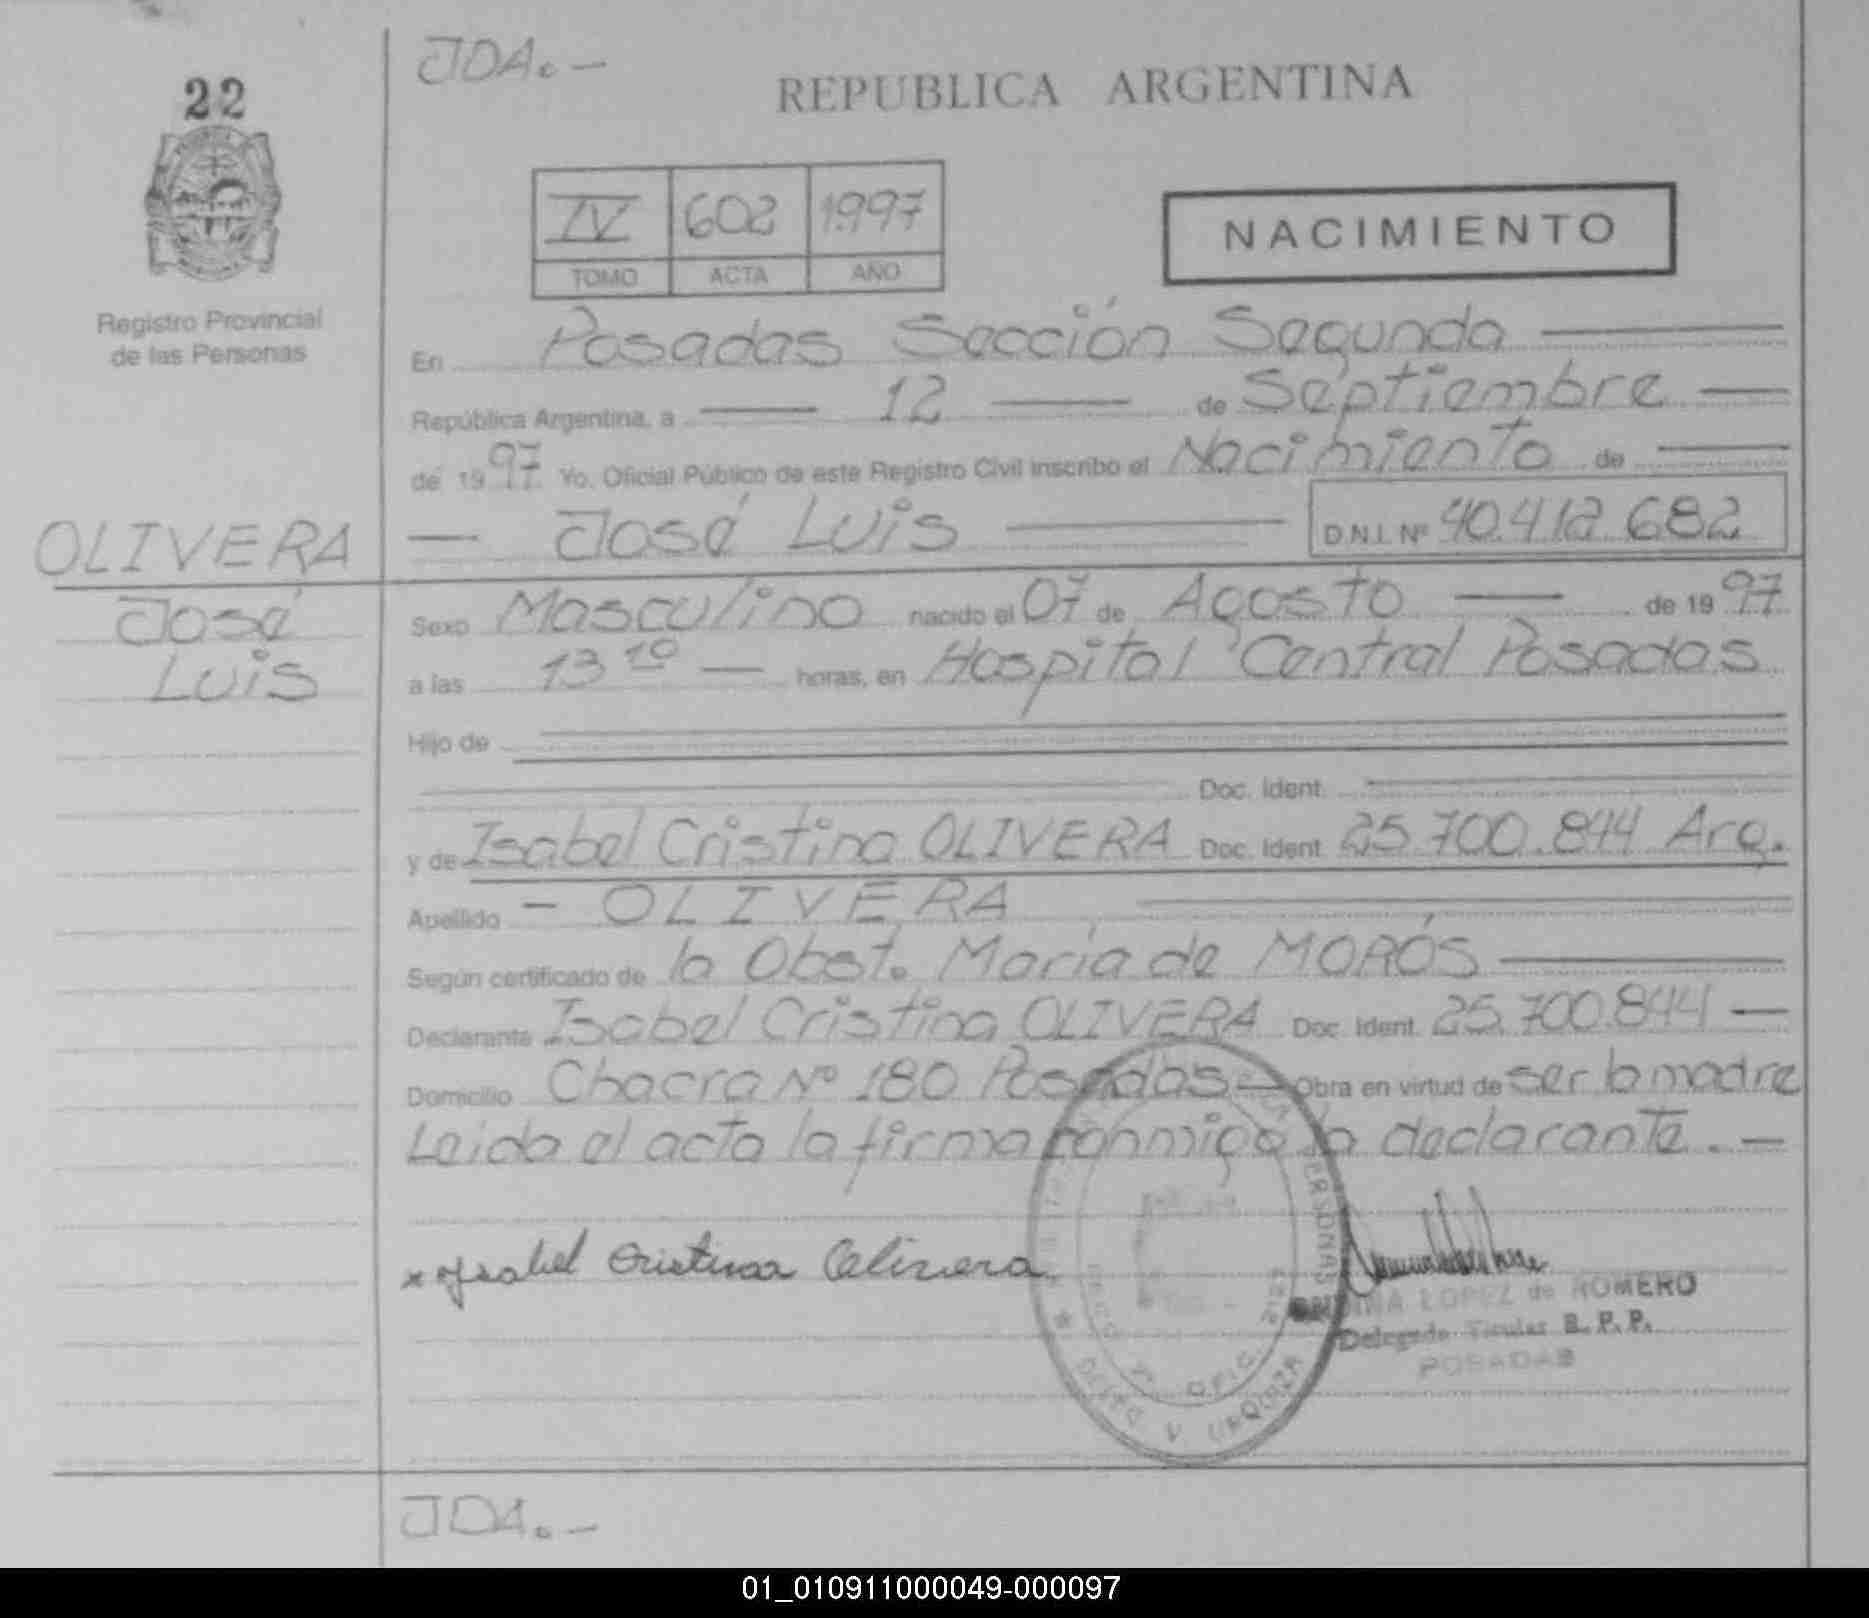 JDA.-
22
REPUBLICA ARGENTINA
IV 602 1.997
TOMO ACTA AÑO
NACIMIENTO
Registro Provincial
de las Personas
En Posadas Sección Segunda
República Argentina, a 12 de Septiembre
de 1997 Yo, Oficial Público de este Registro Civil inscribo el Nacimiento de
OLIVERA
José
Luis
José Luis D.N.I. Nº 40.412.682
Sexo Masculino nacido el 07 de Agosto de 1997
a las 13 10 horas, en Hospital Central Posadas
Hijo de
Doc. Ident.
y de Isabel Cristina OLIVERA Doc. Ident. 25.700.844 Arg.
Apellido - OLIVERA
Según certificado de la Obst. María de MORÓS
Declarante Isabel Cristina OLIVERA Doc. Ident. 25.700.844
Domicilio Chacra Nº 180 Posadas Obra en virtud de ser la madre
Leida el acta la firma conmigo la declarante.
x Ysabel Cristina Olivera
LOPEZ de ROMERO
Delegada Titular R. P. P.
POSADAS
PERSONAS
OFIC.
URQUIZA
JDA.-
01_010911000049-000097